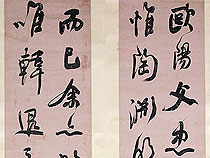 歐陽文忠
惟陶淵明
而已余亦
唯韓退之